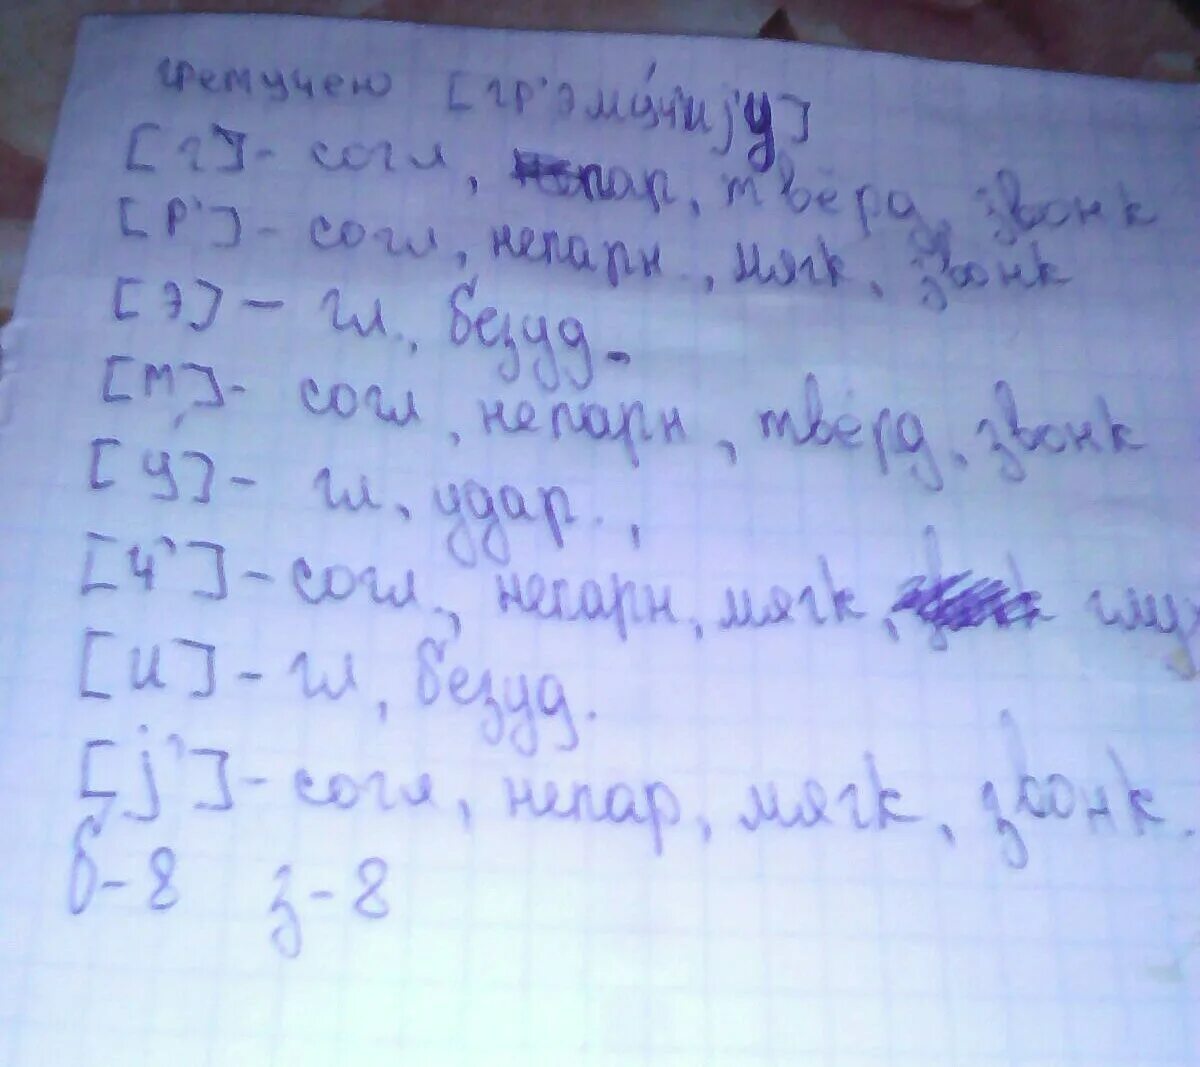 гремучею [гр'эму́ч'иj'у]
[г]- согл, пар, твёрд, звонк
[р']- согл, непарн., мягк, звонк
[э]- гл., безуд.
[м]- согл, непарн, твёрд, звонк
[у́]- гл, удар.,
[ч']- согл., непарн, мягк, глу
[и]- гл, безуд.
[j']- согл, непар, мягк, звонк.
б-8 з-8